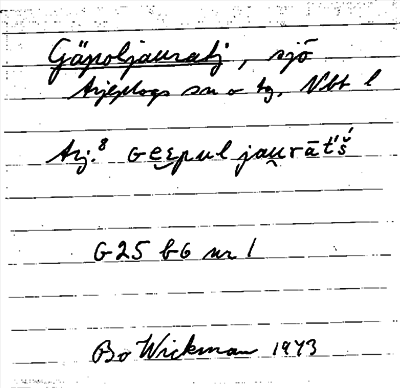 Gäpoljauratj, sjö
Arjeplogs sn o tg. Nbt l
Arj.⁸ Gee̮pul jau̯rāt́š́
G25 b6 nr 1
Bo Wickman 1973